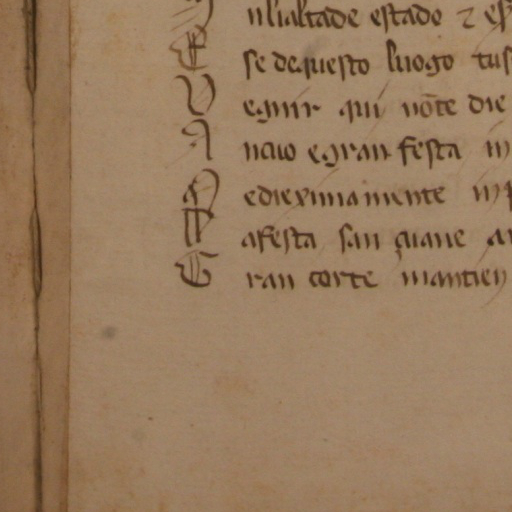 nlialtade estado ⁊ es
E se dequesto luogo tus
V egnir qui nōte die
A ncuo e gran festa in
P ediexima mente in p
L afesta san çuane a
G ran corte mantien